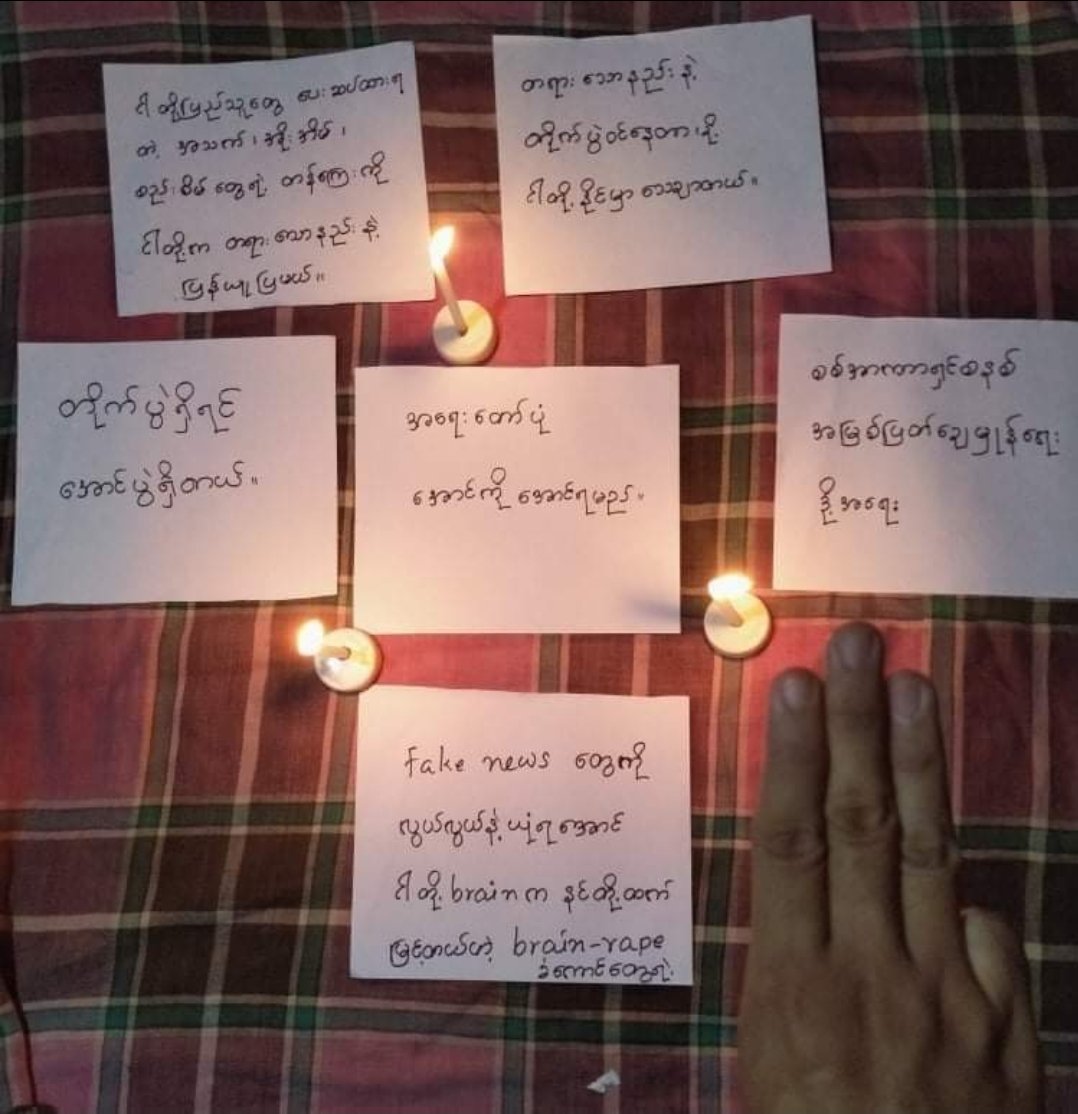 ငါတို့ပြည်သူတွေ ပေးဆပ်ထားရ
တဲ့ အသက်၊ အိုးအိမ်၊
စည်းစိမ်တွေရဲ့ တန်ကြေးကို
ငါတို့က တရားသောနည်းနဲ့
ပြန်ယူပြမယ်။
တရားသောနည်းနဲ့
တိုက်ပွဲဝင်နေတာမို့
ငါတို့နိုင်မှာသေချာတယ်။
တိုက်ပွဲရှိရင်
အောင်ပွဲရှိတယ်။
အရေးတော်ပုံ
အောင်ကိုအောင်ရမည်။
စစ်အာဏာရှင်စနစ်
အမြစ်ပြတ်ချေမှုန်းရေး
ဒို့အရေး
fake news တွေကို
လွယ်လွယ်နဲ့ယုံရအောင်
ငါတို့ brain က နင်တို့ထက်
မြင့်တယ်ဟဲ့ brain-rape
ခံကောင်တွေရဲ့